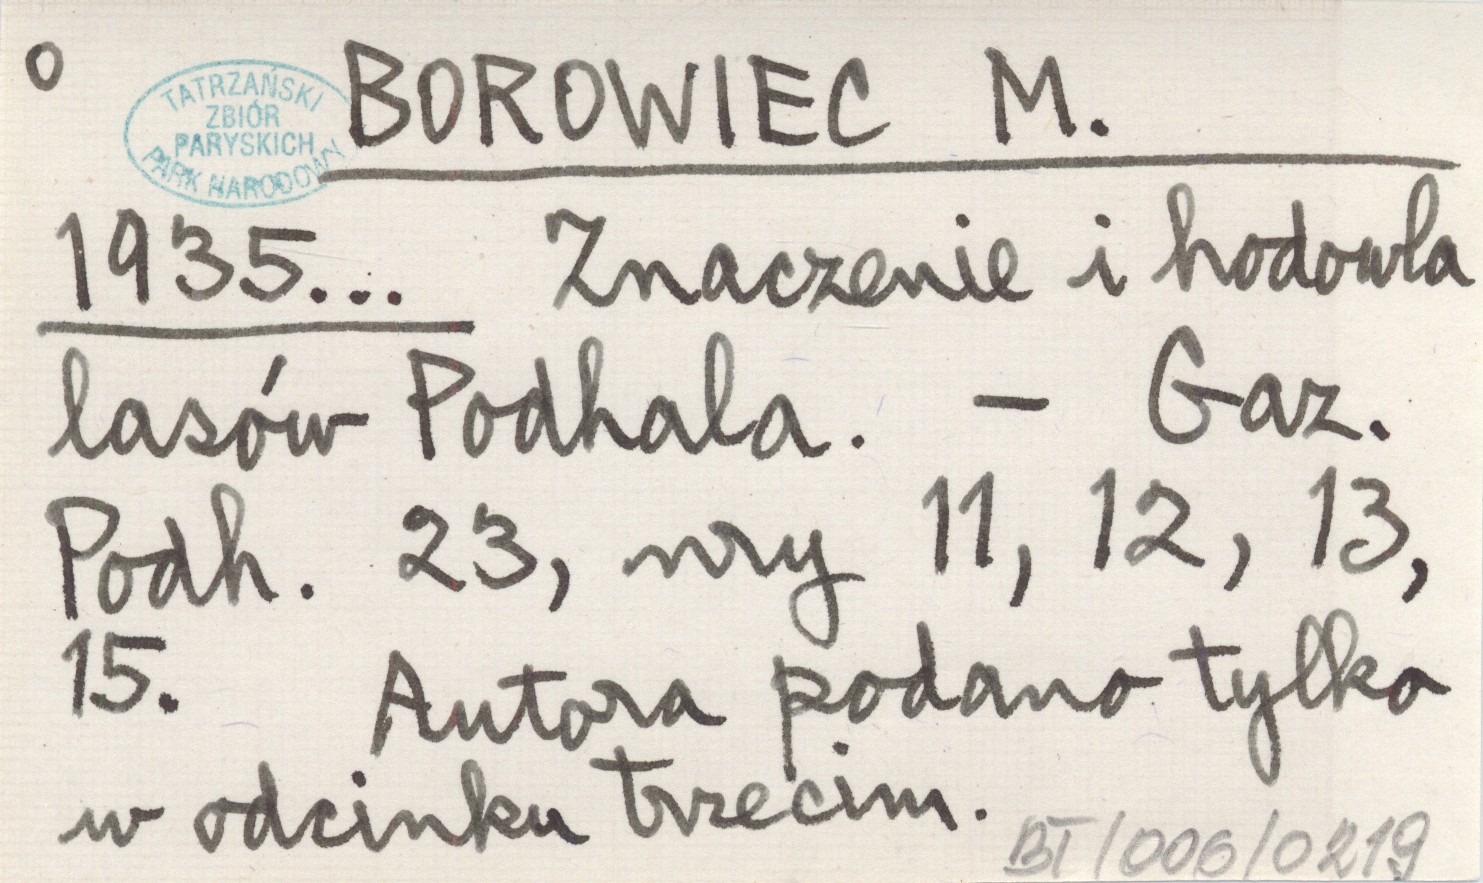 o
TATRZAŃSKI
ZBIÓR
PARYSKICH
PARK NARODOWY
BOROWIEC M.
1935... Znaczenie i hodowla
lasów Podhala. — Gaz.
Podh. 23, nry 11, 12, 13,
15. Autora podano tylko
w odcinku trzecim.
BT/006/0219